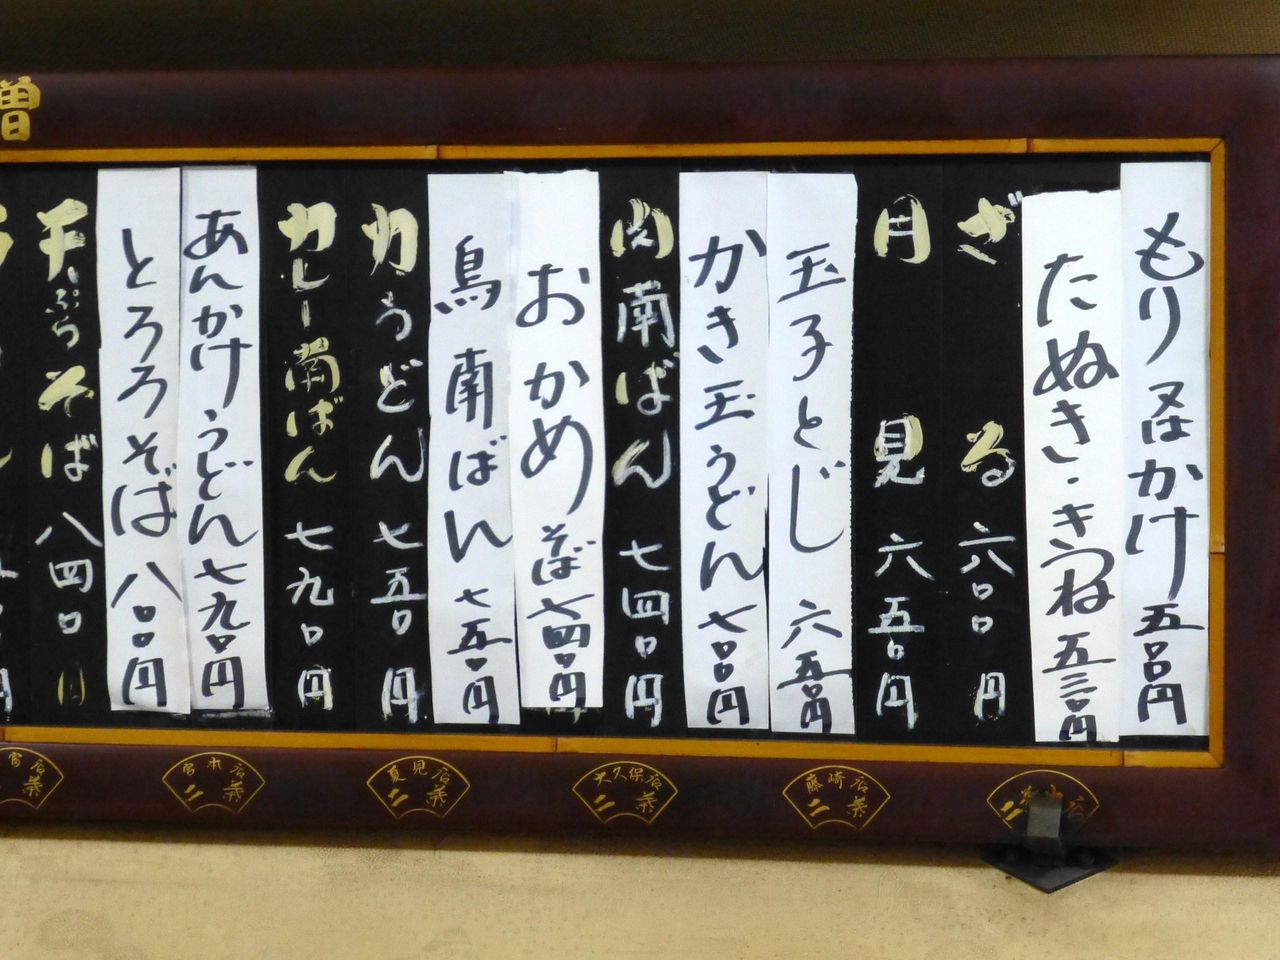 もり又はかけ五〇〇円
たぬき・きつね五三〇円
ざる六〇〇円
月見六五〇円
玉子とじ六五〇円
かき玉うどん七〇〇円
肉南ばん七四〇円
おかめそば七四〇円
鳥南ばん七五〇円
力うどん七五〇円
カレー南ばん七九〇円
あんかけうどん七九〇円
とろろそば八〇〇円
天ぷらそば八四〇円
藤崎店
大久保店
夏見店
宮本店